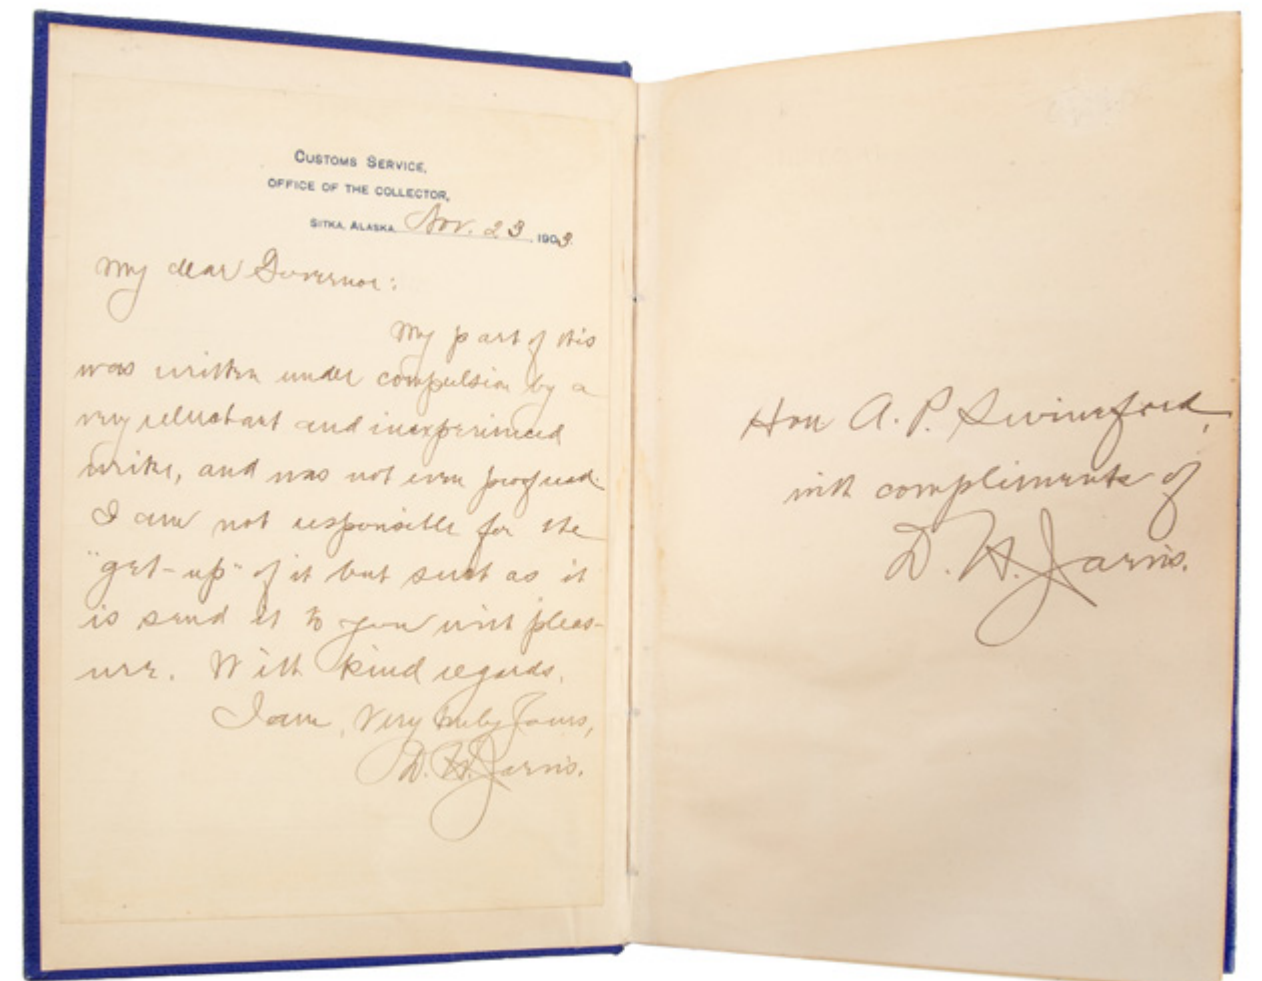 CUSTOMS SERVICE,
OFFICE OF THE COLLECTOR,
SITKA, ALASKA, Nov. 23, 1903.
My dear Governor:
My part of this
was written under compulsion by a
very reluctant and inexperienced
writer, and was not even proofread.
I am not responsible for the
"get-up" of it but such as it
is send it to you with pleas-
ure. With kind regards,
I am, Very truly Yours,
D. H. Jarvis.
Hon A. P. Swineford,
with compliments of
D. H. Jarvis.